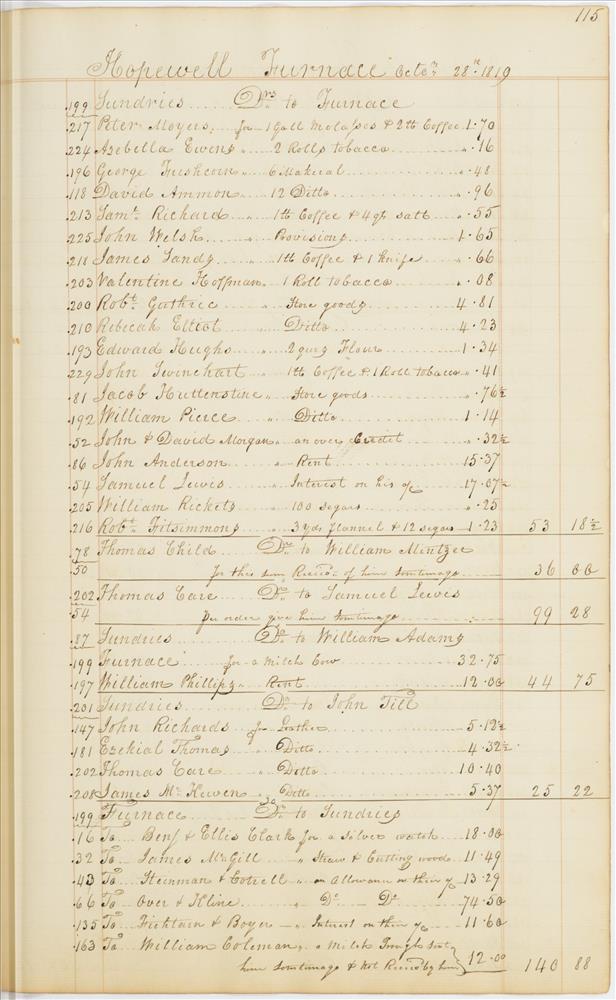 115
Hopewell Furnace Octo.r 28th 1819
199 Sundries Drs to Furnace
217 Peter Moyers for 1 Gall Molasses & 2 lb Coffee 1.70
224 Asebella Ewens " 2 Rolls tobacco " .16
196 George 6 Makeral " .48
118 David Ammon " 12 Ditto " .96
213 Saml. Richard " 1 lb Coffee & 4 qts salt " .55
225 John Welsh " Provisions 1.65
211 James Sandy " 1 lb Coffee & 1 knife " .66
203 Valentine Hoffman " 1 Roll tobacco " .08
200 Robt. Guthrie " Store goods 4.81
210 Rebecah Elliot " Ditto 4.23
193 Edward Hughs " 2 qurs Flour 1.34
229 John Swinehart " 1 lb Coffee & 1 Roll tobacco " .41
81 Jacob Huttenstine " Store goods " .76½
192 William Pierce " Ditto 1.14
52 John & David Morgan " an over Credit " .32½
86 John Anderson " Rent 15.37
54 Samuel Lewis " Interest on his a/c 17.07½
205 William Rickets " 100 segars " .25
216 Robt. Fitsimmons " 3 yds flannel & 12 segars 1.23 53 18½
78 Thomas Child Dr. to William Mintzer
50 for this sum of him 36 00
202 Thomas Care Dr. to Samuel Lewis
54 per order give him 99 28
87 Sundries Drs to William Adams
199 Furnace for a Milch Cow 32.75
197 William Phillips " Rent 12.00 44 75
201 Sundries Drs to John Till
147 John Richards for Leather 5.12½
181 Ezekial Thomas " Ditto 4.32½
202 Thomas Care " Ditto 10.40
208 James Mc Kewen " Ditto 5.37 25 22
199 Furnace Dr. to Sundries
16 To Benj & Ellis Clark for a Silver watch 18.00
32 To James Mc Gill " Straw & Cutting wood 11.49
43 To Steinman & Cotrell " an Allowance on their a/c 13.29
66 To Over & Kline " Do Do 74.50
135 To Fichtain & Boyer " Interest on their a/c 11.60
163 To William Coleman, a Milch Trough sent
him & Not by him 12.00 140 88